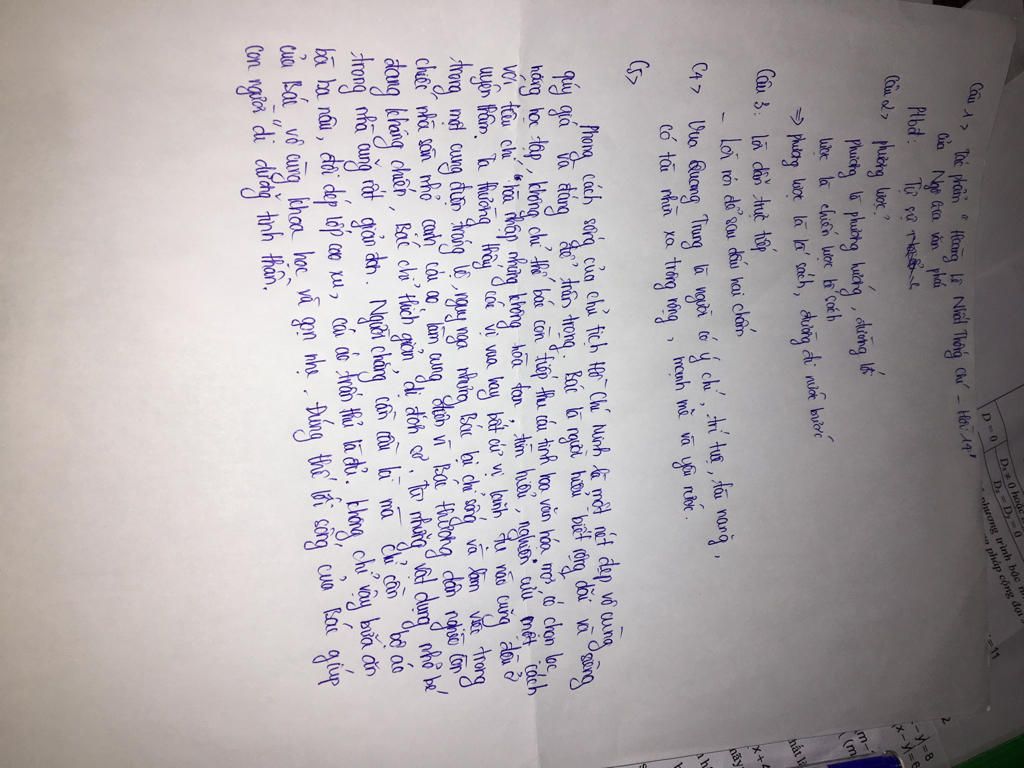 Câu 1, Tác phẩm " Hoàng Lê Nhất Thống Chí - Hồi 14"
của Ngô Gia văn phái
Ptbđ: Tự sự
Câu 2, phương lược?
phương là phương hướng, đường lối
lược là chiến lược kế sách
=> phương lược là kế sách, đường đi nước bước
Câu 3: Lời dẫn trực tiếp
- Lời nói để sau dấu hai chấm
C4, Vua Quang Trung là người có ý chí, trí tuệ, tài năng,
có tài nhìn xa trông rộng, mạnh mẽ và yêu nước.
C5,
Phong cách sống của chủ tịch Hồ Chí Minh là một nét đẹp vô cùng
quý giá và đáng để trân trọng. Bác là người hiểu biết rộng rãi và sẵng
năng học tập, không chỉ thế bác còn tiếp thu cái tinh hoa văn hóa mới có chọn lọc
với tiêu chí " tòa nhập nhưng không hòa tan, tìm hiểu, nghiên cứu một cách
uyên thâm. Ta thường thấy các vị vua hay bất cứ vị lãnh tụ nào cũng đều ở
trong một cung điện tráng lệ, nguy nga nhưng Bác thì chỉ sống và làm việc trong
chiếc nhà sàn nhỏ cạnh cái ao làm cung điện vì Bác thương dân nghèo còn
đang kháng chiến, Bác chỉ thích giản dị đơn sơ. Từ những vật dụng nhỏ bé
trong nhà cũng rất giản đơn. Người chẳng cần cầu kì mà chỉ cần bộ áo
bà ba nâu, đôi dép lốp cao su, cái áo trấn thủ là đủ. Không chỉ vậy bữa ăn
của Bác vô cùng khoa học và gọn nhẹ. Đúng thế lối sống của Bác giúp
con người di dưỡng tinh thần.
D = 0